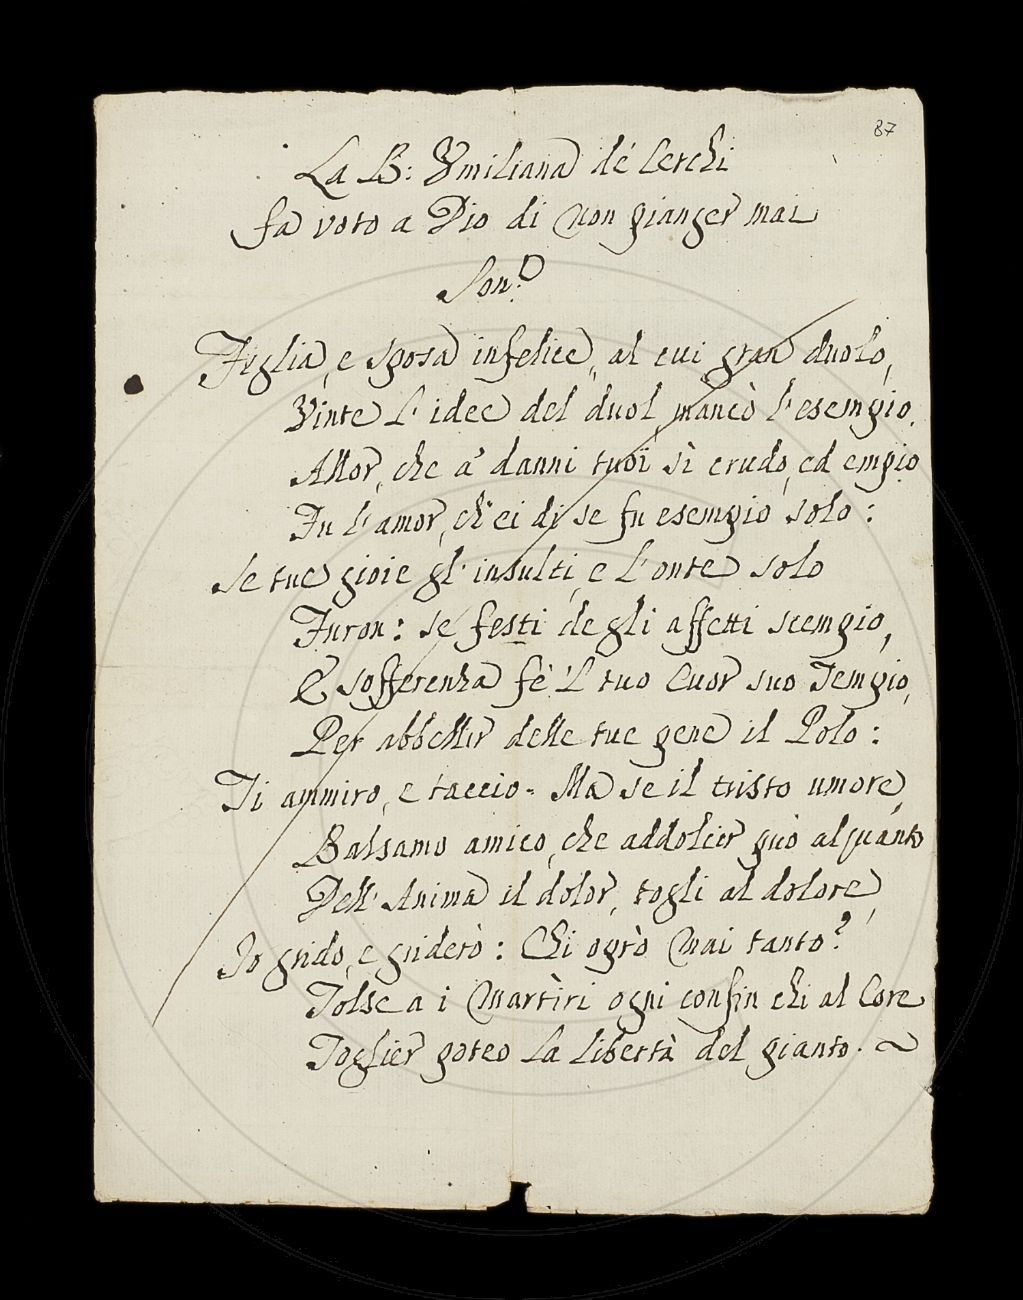 87
La B: Emiliana dé Cerchi
fa voto a Dio di non pianger mai
Son:º
Figlia, e sposa infelice, al cui gran duolo,
Vinte l'idee del duol, mancò l'esempio.
Allor, che a' danni tuoi sì crudo, ed empio
Fu l'amor, ch'ei di se fu esempio solo:
Se tue gioie gl'insulti, e l'onte solo
Furon: se festi degli affetti scempio,
E sofferenza fè 'l tuo Cuor suo Tempio,
Per abbellir delle tue pene il Polo:
Ti ammiro, e taccio. Ma se il tristo umore,
Balsamo amico, che addolcir può alquanto
Dell'Anima il dolor, togli al dolore,
Io grido, e griderò: Chi oprò mai tanto?
Tolse a i martìri ogni confin chi al Core
Toglier poteo la libertà del pianto. ~